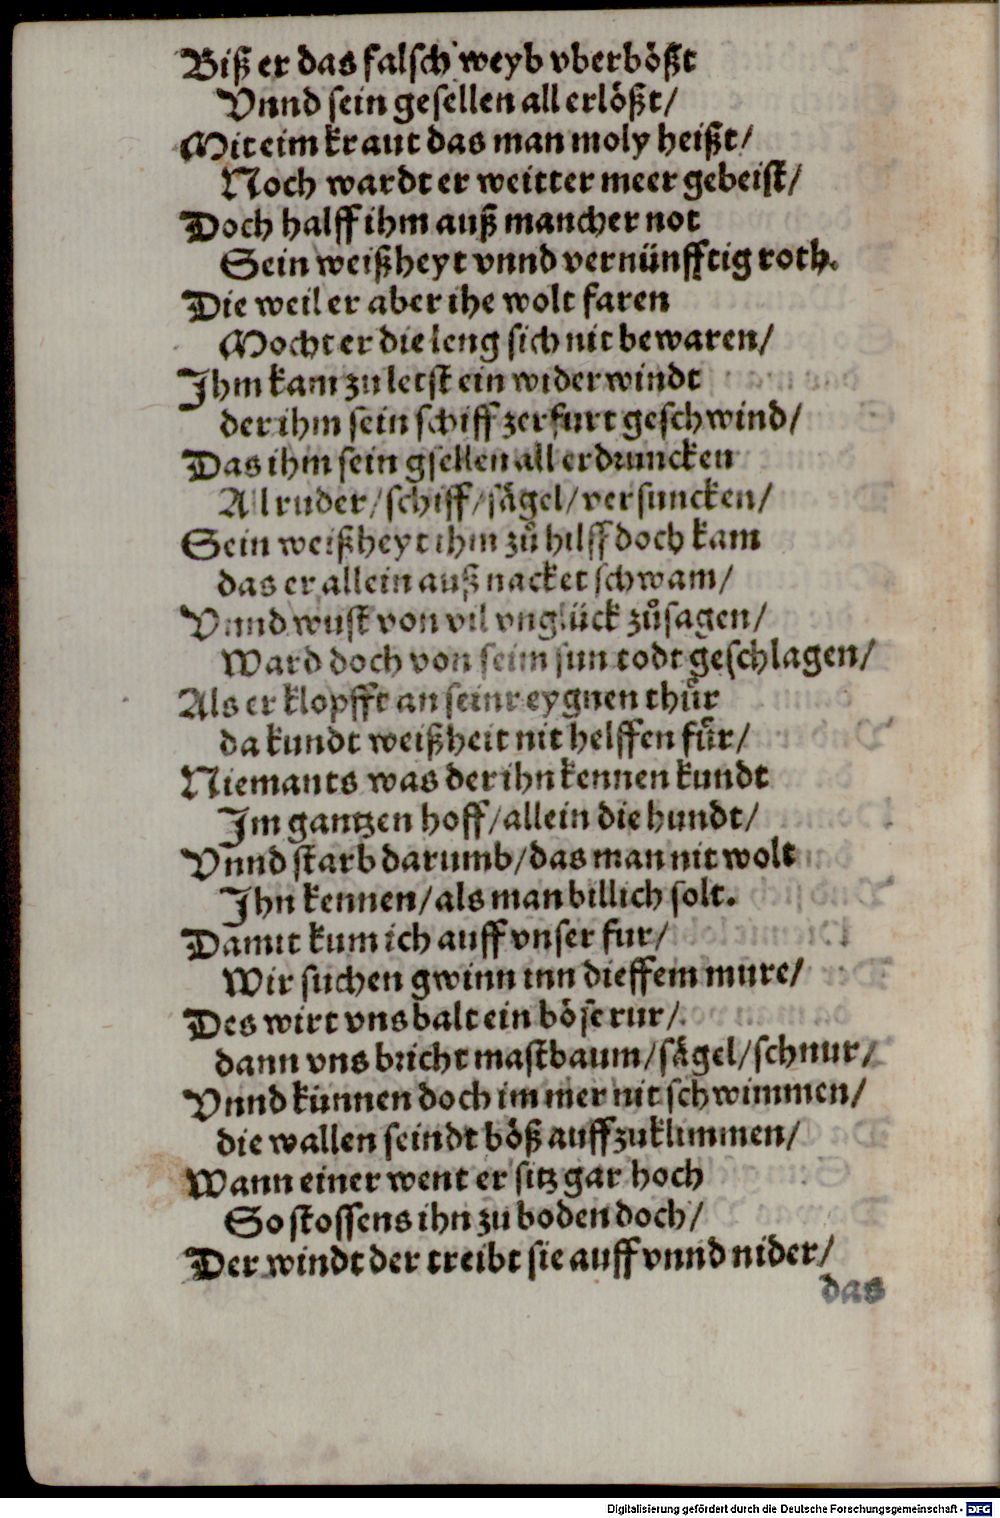 Biß er das falsch weyb vberbößt
Vnnd sein gesellen all erlößt/
Mit eim kraut das man moly heißt/
Noch wardt er weitter meer gebeist/
Doch halff ihm auß mancher not
Sein weißheyt vnnd vernünfftig roth.
Die weil er aber ihe wolt faren
Mocht er die leng sich nit bewaren/
Ihm kam zu letst ein widerwindt
der ihm sein schiff zerfurt geschwind/
Das ihm sein gsellen all erdruncken
All ruder/schiff/sågel/versuncken/
Sein weißheyt ihm zů hilff doch kam
das er allein auß nacket schwam/
Vnnd wust von vil vnglück zůsagen/
Ward doch von seim sun todt geschlagen/
Als er klopfft an seinr eygnen thůr
da kundt weißheit nit helffen fůr/
Niemants was der ihn kennen kundt
Im gantzen hoff/allein die hundt/
Vnnd starb darumb/das man nit wolt
Ihn kennen/als man billich solt.
Damit kum ich auff vnser fur/
Wir suchen gwinn inn dieffem mure/
Des wirt vns balt ein böse rur/
dann vns bricht mastbaum/sågel/schnur/
Vnnd künnen doch im mer nit schwimmen/
die wallen seindt böß auffzuklimmen/
Wann einer went er sitz gar hoch
So stossens ihn zu boden doch/
Der windt der treibt sie auff vnnd nider/
das
Digitalisierung gefördert durch die Deutsche Forschungsgemeinschaft - DFG